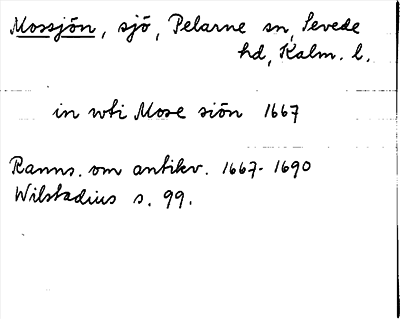 Mossjön, sjö, Pelarne sn, Sevede
hd, Kalm. l.
in uti Mose siön 1667
Ranns. om antikv. 1667-1690
Wilstadius s. 99.